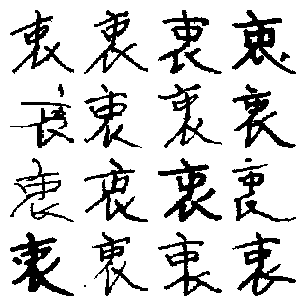 衷衷衷衷
衷衷衷衷
衷衷衷衷
衷衷衷衷